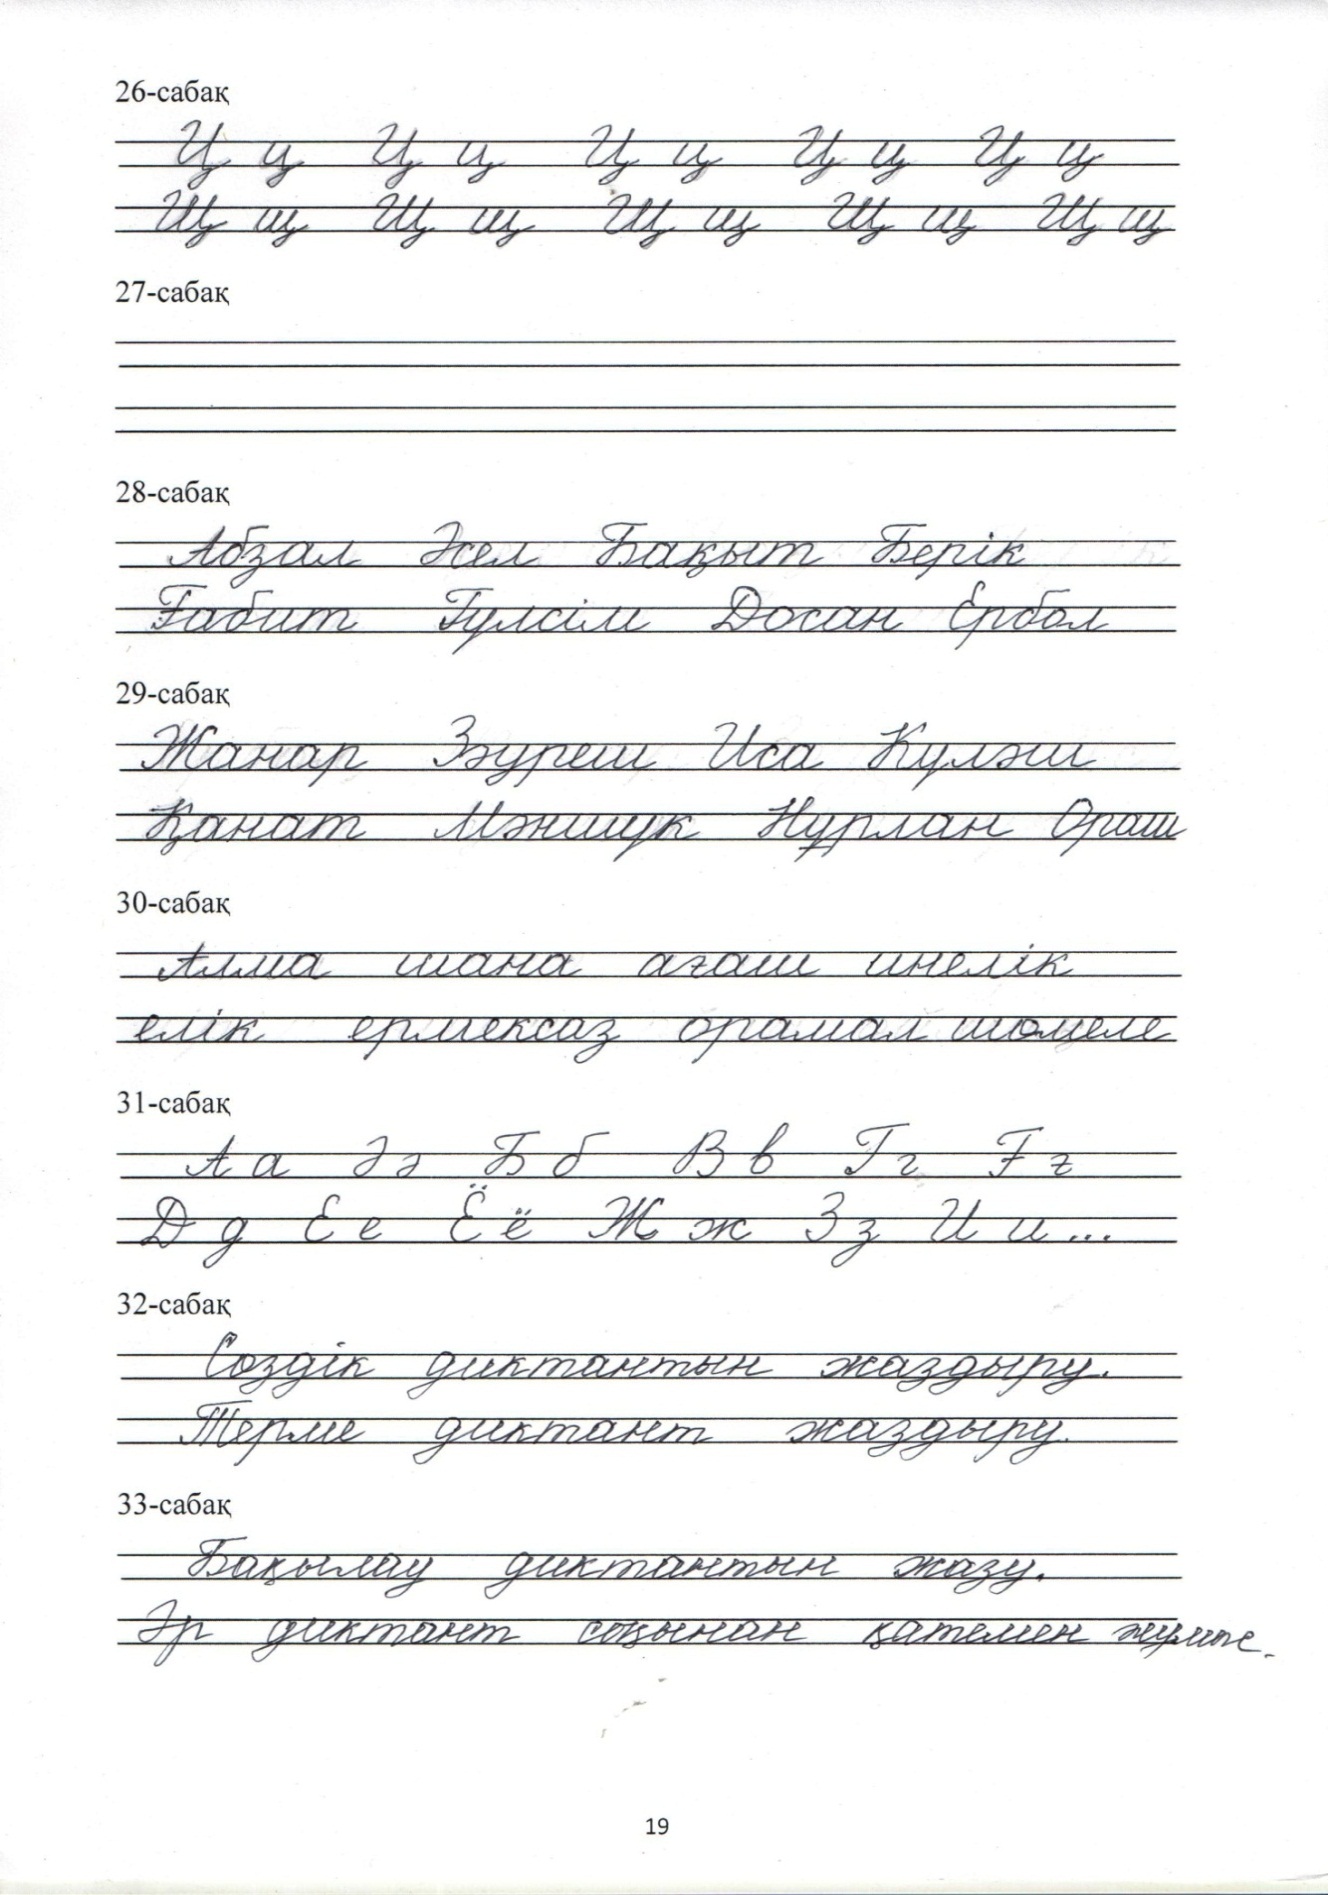 26-сабақ
Ц ц Ц ц Ц ц Ц ц Ц ц
Щ щ Щ щ Щ щ Щ щ Щ щ
27-сабақ
28-сабақ
Абзал Әсел Бақыт Берік
Ғабит Гүлсім Досан Ербол
29-сабақ
Жанар Зәуреш Иса Күләш
Қанат Мәншүк Нұрлан Ораш
30-сабақ
Алма шана ағаш инелік
елік ермексаз орамал шөмеле
31-сабақ
А а Ә ә Б б В в Г г Ғ ғ
Д д Е е Ё ё Ж ж З з И и...
32-сабақ
Сөздік диктантын жаздыру.
Терме диктант жаздыру.
33-сабақ
Бақылау диктантын жазу.
Әр диктант соңынан қатемен жұмыс.
19